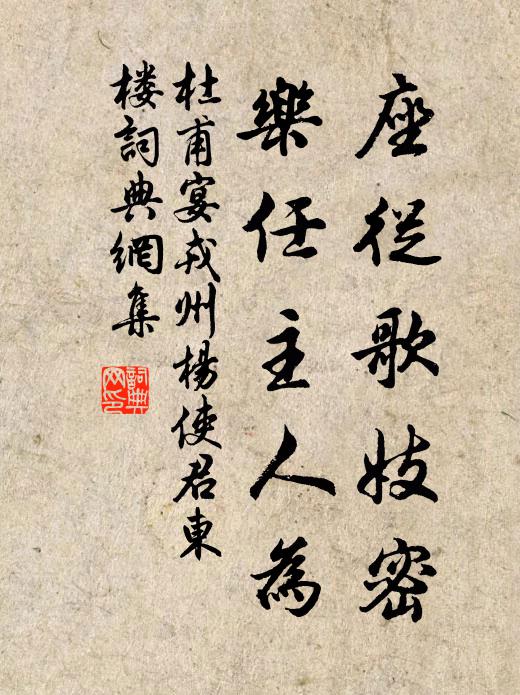 座從歌妓密
樂任主人為
杜甫宴戎州楊使君東
楼詞典網集
詞典
网印